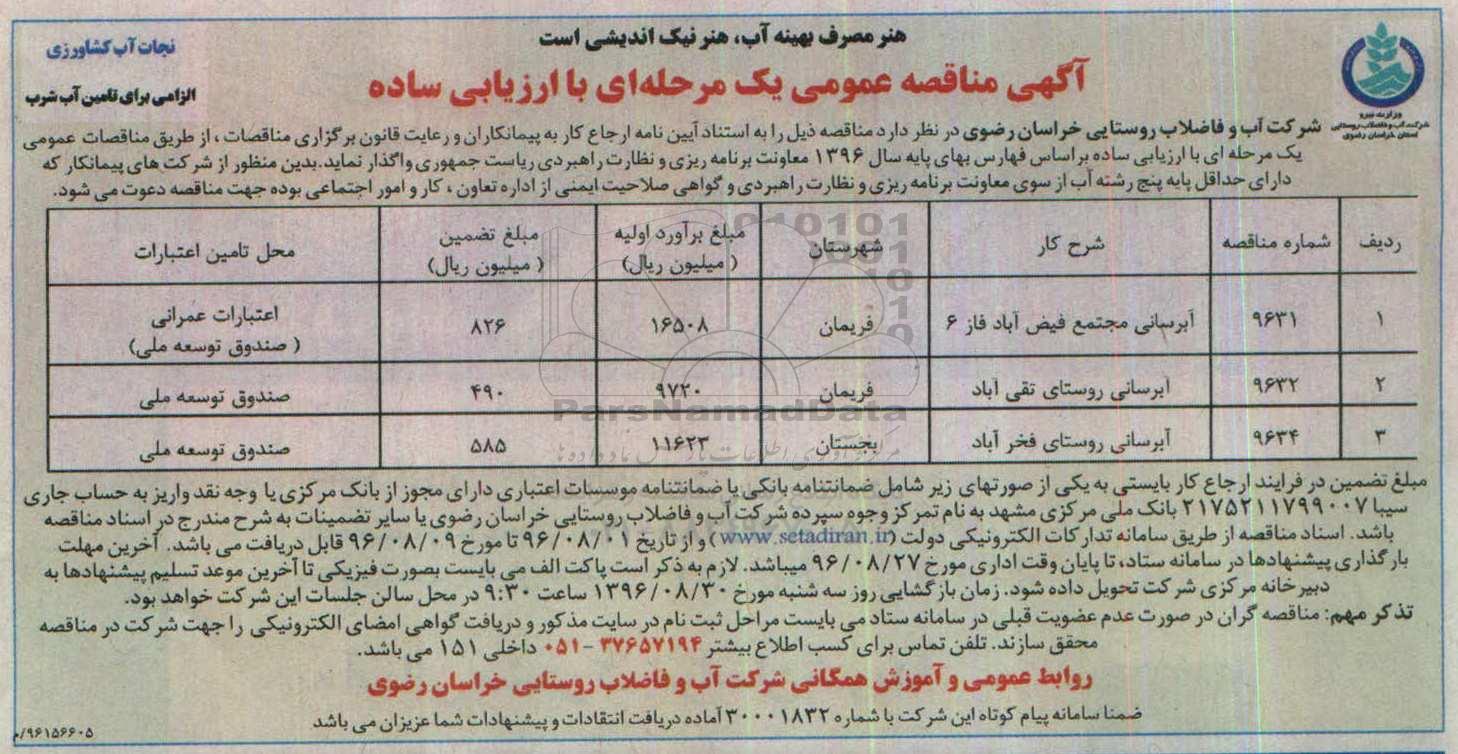 هنر مصرف بهینه آب، هنر نیک اندیشی است
نجات آب کشاورزی
الزامی برای تامین آب شرب
آگهی مناقصه عمومی یک مرحله‌ای با ارزیابی ساده
وزارت نیرو
شرکت آب و فاضلاب روستایی
استان خراسان رضوی
شرکت آب و فاضلاب روستایی خراسان رضوی در نظر دارد مناقصه ذیل را به استناد آیین نامه ارجاع کار به پیمانکاران و رعایت قانون برگزاری مناقصات ، از طریق مناقصات عمومی
یک مرحله ای با ارزیابی ساده بر اساس فهارس بهای پایه سال ۱۳۹۶ معاونت برنامه ریزی و نظارت راهبردی ریاست جمهوری واگذار نماید.بدین منظور از شرکت های پیمانکار که
دارای حداقل پایه پنج رشته آب از سوی معاونت برنامه ریزی و نظارت راهبردی و گواهی صلاحیت ایمنی از اداره تعاون ، کار و امور اجتماعی بوده جهت مناقصه دعوت می شود.
ردیف شماره مناقصه شرح کار شهرستان مبلغ برآورد اولیه ( میلیون ریال) مبلغ تضمین ( میلیون ریال) محل تامین اعتبارات
۱ ۹۶۳۱ آبرسانی مجتمع فیض آباد فاز ۶ فریمان ۱۶۵۰۸ ۸۲۶ اعتبارات عمرانی ( صندوق توسعه ملی)
۲ ۹۶۳۲ آبرسانی روستای تقی آباد فریمان ۹۷۲۰ ۴۹۰ صندوق توسعه ملی
۳ ۹۶۳۴ آبرسانی روستای فخر آباد بجستان ۱۱۶۲۳ ۵۸۵ صندوق توسعه ملی
ParsNamadData
مبلغ تضمین در فرایند ارجاع کار بایستی به یکی از صورتهای زیر شامل ضمانتنامه بانکی یا ضمانتنامه موسسات اعتباری دارای مجوز از بانک مرکزی یا وجه نقد واریز به حساب جاری
سیبا ۲۱۷۵۲۱۱۷۹۹۰۰۷ بانک ملی مرکزی مشهد به نام تمرکز وجوه سپرده شرکت آب و فاضلاب روستایی خراسان رضوی یا سایر تضمینات به شرح مندرج در اسناد مناقصه
باشد. اسناد مناقصه از طریق سامانه تدارکات الکترونیکی دولت (www.setadiran.ir) و از تاریخ ۹۶/۰۸/۰۱ تا مورخ ۹۶/۰۸/۰۹ قابل دریافت می باشد. آخرین مهلت
بارگذاری پیشنهادها در سامانه ستاد، تا پایان وقت اداری مورخ ۹۶/۰۸/۲۷ میباشد. لازم به ذکر است پاکت الف می بایست بصورت فیزیکی تا آخرین موعد تسلیم پیشنهادها به
دبیرخانه مرکزی شرکت تحویل داده شود. زمان بازگشایی روز سه شنبه مورخ ۱۳۹۶/۰۸/۳۰ ساعت ۹:۳۰ در محل سالن جلسات این شرکت خواهد بود.
تذکر مهم: مناقصه گران در صورت عدم عضویت قبلی در سامانه ستاد می بایست مراحل ثبت نام در سایت مذکور و دریافت گواهی امضای الکترونیکی را جهت شرکت در مناقصه
محقق سازند. تلفن تماس برای کسب اطلاع بیشتر ۳۷۶۵۷۱۹۴ -۰۵۱ داخلی ۱۵۱ می باشد.
روابط عمومی و آموزش همگانی شرکت آب و فاضلاب روستایی خراسان رضوی
ضمنا سامانه پیام کوتاه این شرکت با شماره ۳۰۰۰۱۸۳۲ آماده دریافت انتقادات و پیشنهادات شما عزیزان می باشد
۹۶۱۵۶۶۰۵/م